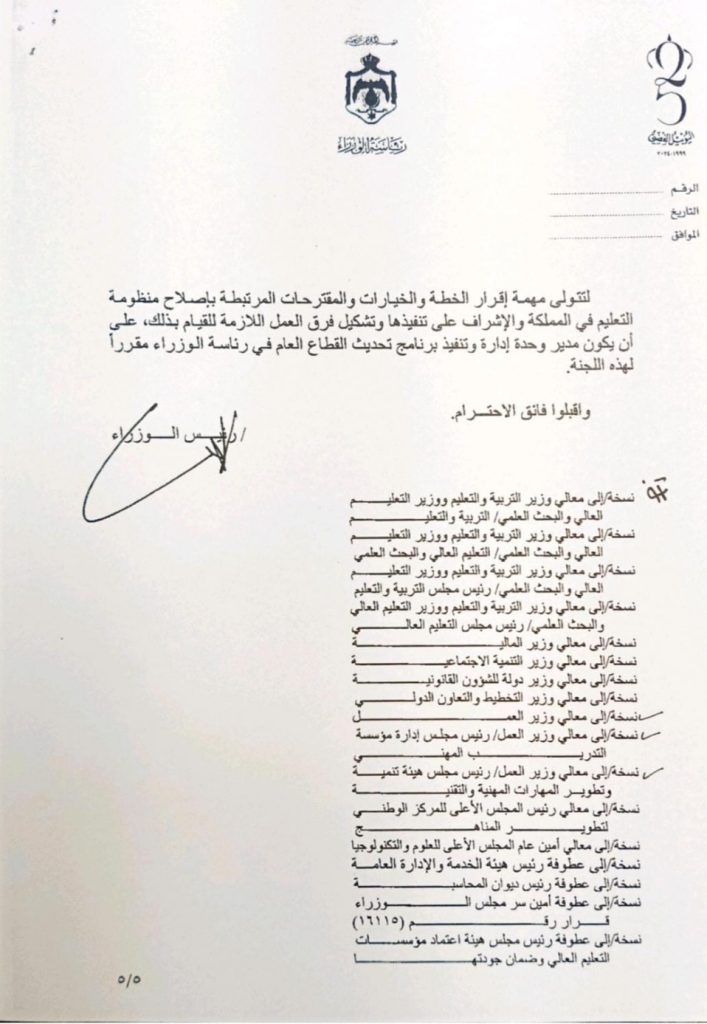 رئاسة الوزراء
اليوبيل الفضي
١٩٩٩-٢٠٢٤
الرقم
التاريخ
الموافق
لتتولى مهمة إقرار الخطة والخيارات والمقترحات المرتبطة بإصلاح منظومة
التعليم في المملكة والإشراف على تنفيذها وتشكيل فرق العمل اللازمة للقيام بذلك، على
أن يكون مدير وحدة إدارة وتنفيذ برنامج تحديث القطاع العام في رئاسة الوزراء مقرراً
لهذه اللجنة.
واقبلوا فائق الاحترام.
/ رئيس الوزراء
نسخة/إلى معالي وزير التربية والتعليم ووزير التعليم
العالي والبحث العلمي/ التربية والتعليم
نسخة/إلى معالي وزير التربية والتعليم ووزير التعليم
العالي والبحث العلمي/ التعليم العالي والبحث العلمي
نسخة/إلى معالي وزير التربية والتعليم ووزير التعليم
العالي والبحث العلمي/ رئيس مجلس التربية والتعليم
نسخة/إلى معالي وزير التربية والتعليم ووزير التعليم العالي
والبحث العلمي/ رئيس مجلس التعليم العالي
نسخة/إلى معالي وزير المالية
نسخة/إلى معالي وزير التنمية الاجتماعية
نسخة/إلى معالي وزير دولة للشؤون القانونية
نسخة/إلى معالي وزير التخطيط والتعاون الدولي
نسخة/إلى معالي وزير العمل
نسخة/إلى معالي وزير العمل/ رئيس مجلس إدارة مؤسسة
التدريب المهني
نسخة/إلى معالي وزير العمل/ رئيس مجلس هيئة تنمية
وتطوير المهارات المهنية والتقنية
نسخة/إلى معالي رئيس المجلس الأعلى للمركز الوطني
لتطوير المناهج
نسخة/إلى معالي أمين عام المجلس الأعلى للعلوم والتكنولوجيا
نسخة/إلى عطوفة رئيس هيئة الخدمة والإدارة العامة
نسخة/إلى عطوفة رئيس ديوان المحاسبة
نسخة/إلى عطوفة أمين سر مجلس الوزراء
قرار رقم (١٦١١٥)
نسخة/إلى عطوفة رئيس مجلس هيئة اعتماد مؤسسات
التعليم العالي وضمان جودتها
٥/٥